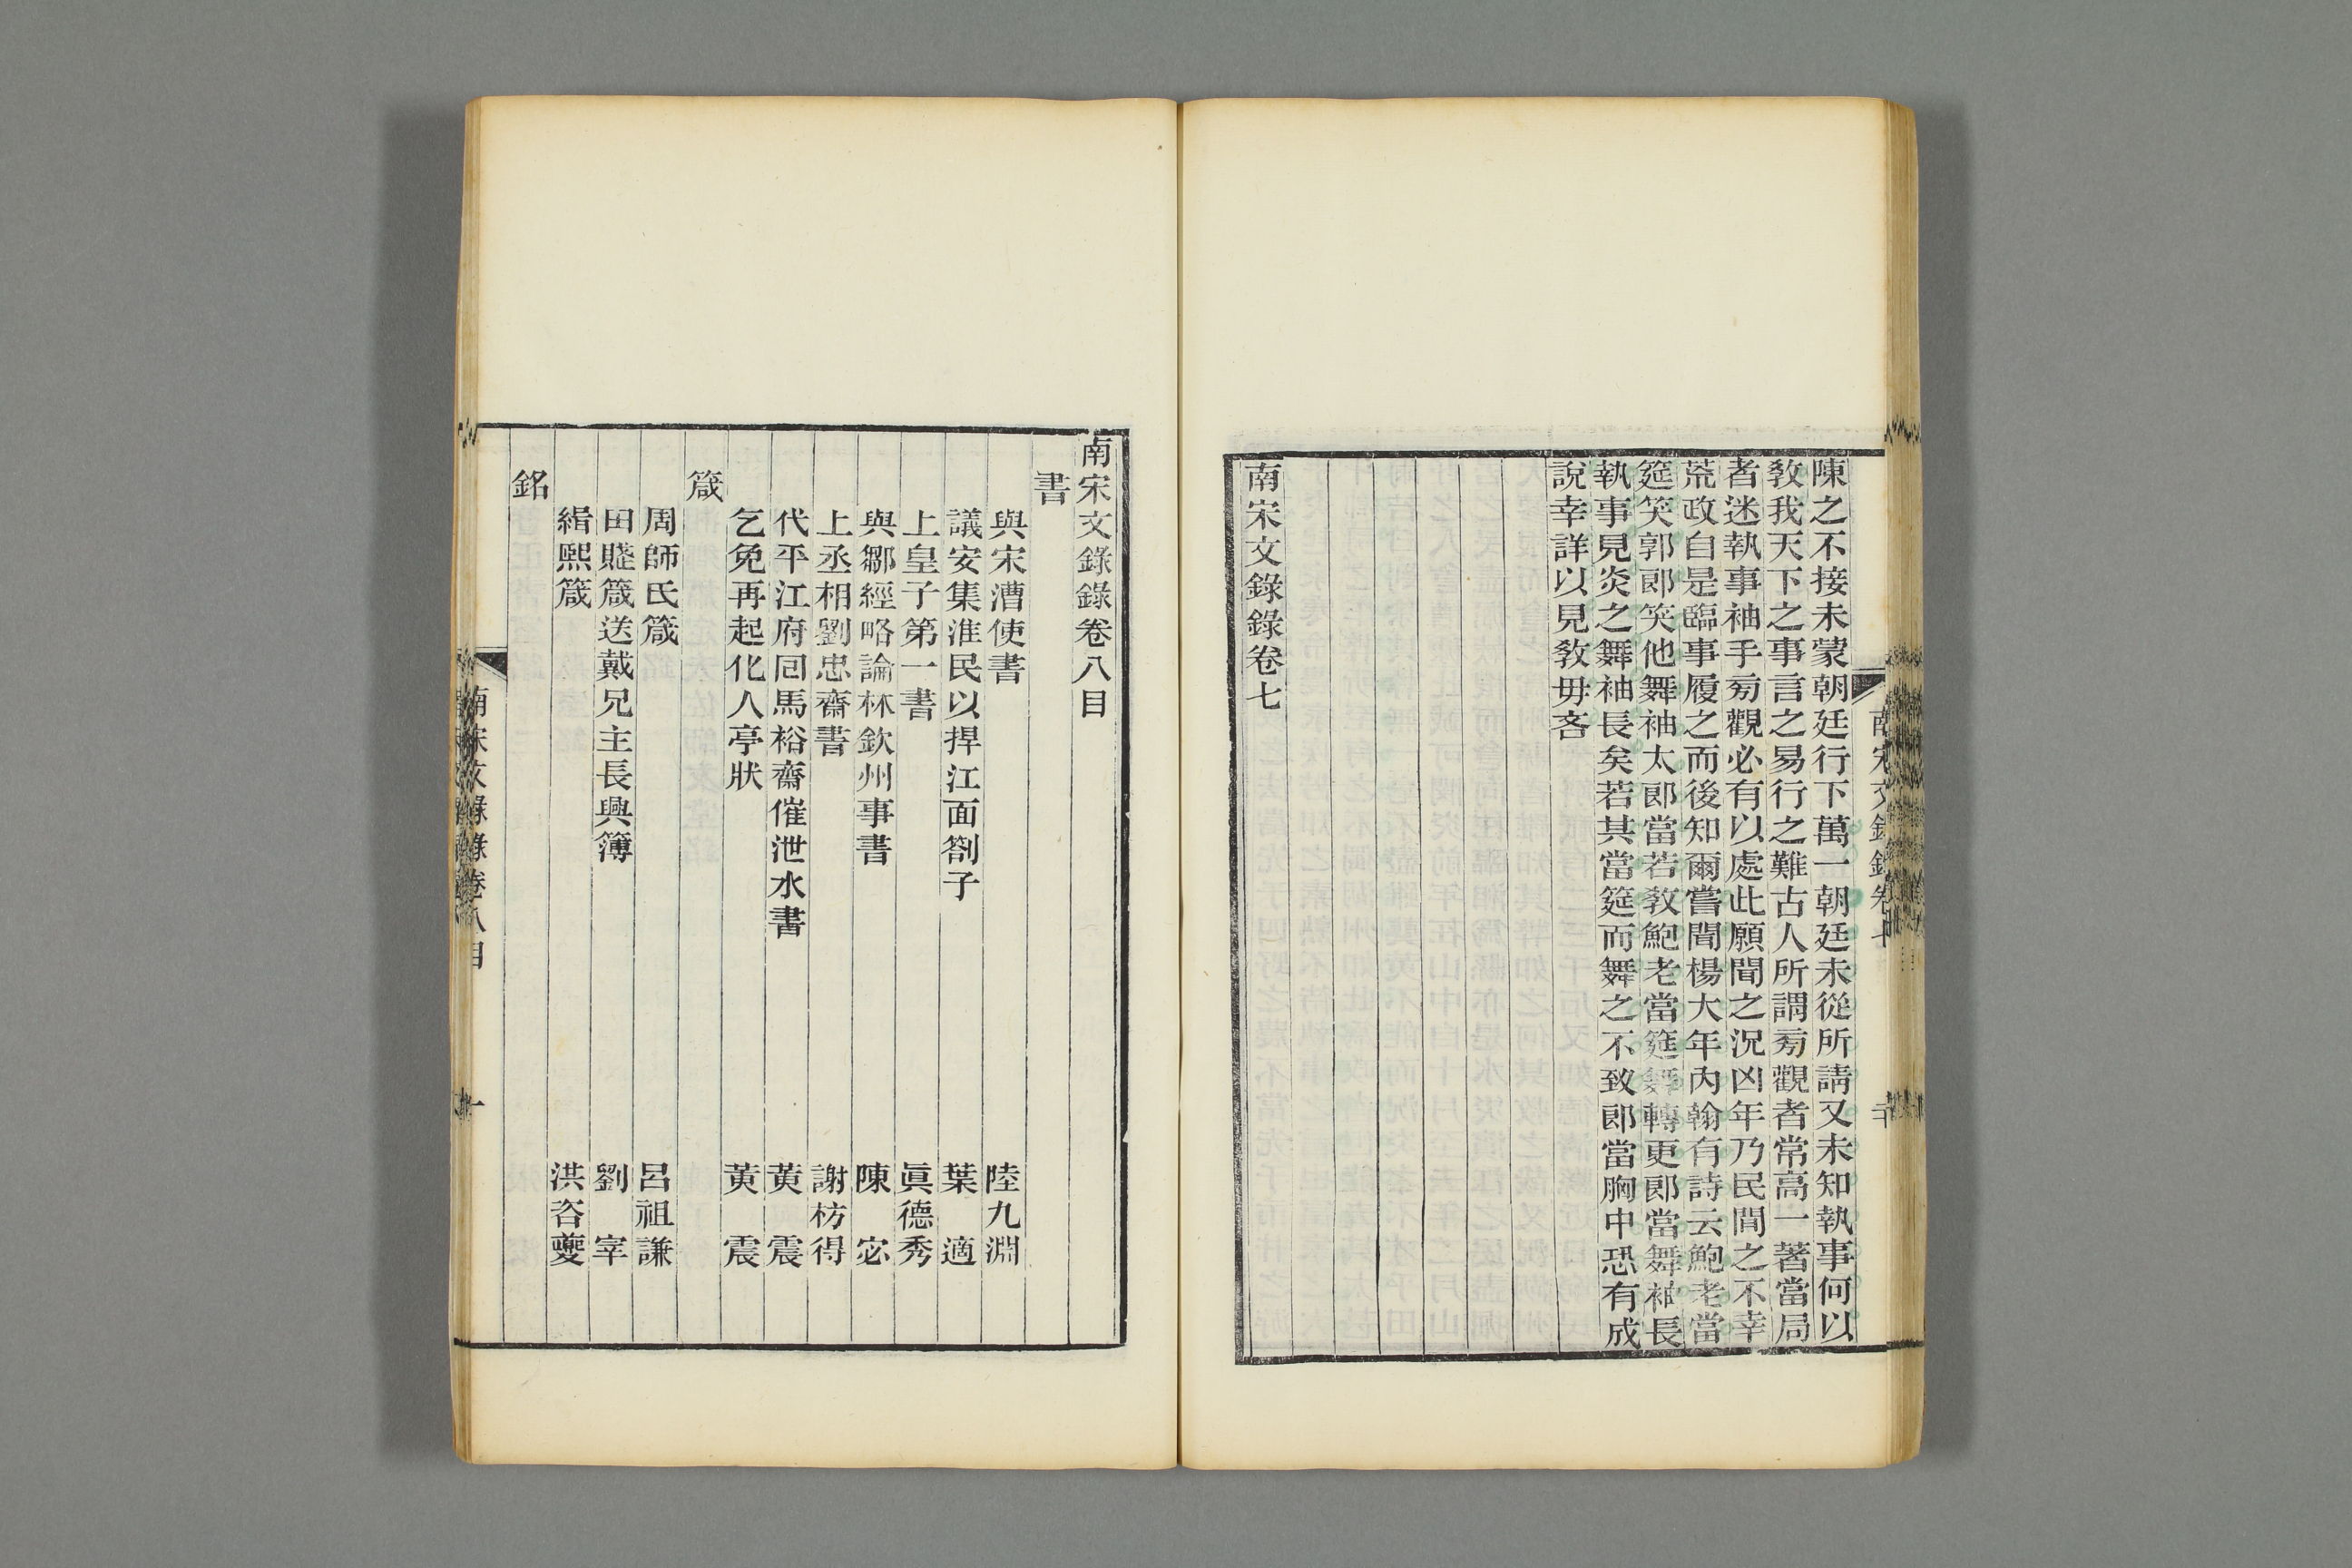 陳之不接未蒙朝廷行下萬一朝廷未從所請又未知執事何以
敎我天下之事言之易行之難古人所謂旁觀者常高一著當局
者迷執事袖手旁觀必有以處此願聞之況凶年乃民閒之不幸
荒政自是臨事履之而後知爾嘗聞楊大年內翰有詩云鮑老當
筵笑郭郎笑他舞袖太郎當若敎鮑老當筵舞轉更郎當舞袖長
執事見炎之舞袖長矣若其當筵而舞之不致郎當胸中恐有成
說幸詳以見敎毋吝
南宋文錄錄卷七
南宋文錄錄卷八目
書
與宋漕使書 陸九淵
議安集淮民以捍江面劄子 葉適
上皇子第一書 眞德秀
與鄒經略論林欽州事書 陳宓
上丞相劉忠齋書 謝枋得
代平江府回馬裕齋催泄水書 黃震
乞免再起化人亭狀 黃震
箴
周師氏箴 呂祖謙
田賤箴送戴兄主長興簿 劉宰
緝熙箴 洪咨夔
銘
南宋文錄錄卷八目 一